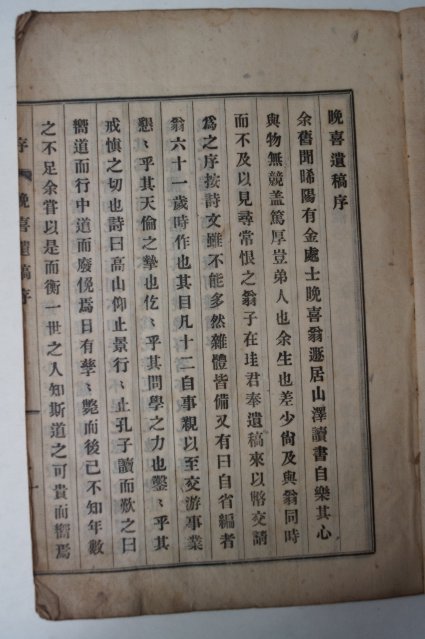 晚喜遺稿序
余舊聞晞陽有金處士晚喜翁遯居山澤讀書自樂其心
與物無競盖篤厚豈弟人也余生也差少尙及與翁同時
而不及以見尋常恨之翁子在珪君奉遺稿來以幣交請
爲之序按詩文雖不能多然雜體皆備又有曰自省編者
翁六十一歲時作也其目凡十二自事親以至交游事業
懇〻乎其天倫之摯也仡〻乎其問學之力也鑿〻乎其
戒愼之切也詩曰高山仰止景行〻止孔子讀而歎之曰
嚮道而行中道而廢俛焉日有孳〻斃而後已不知年數
之不足余嘗以是而衡一世之人知斯道之可貴而嚮焉
序 晚喜遺稿序 一